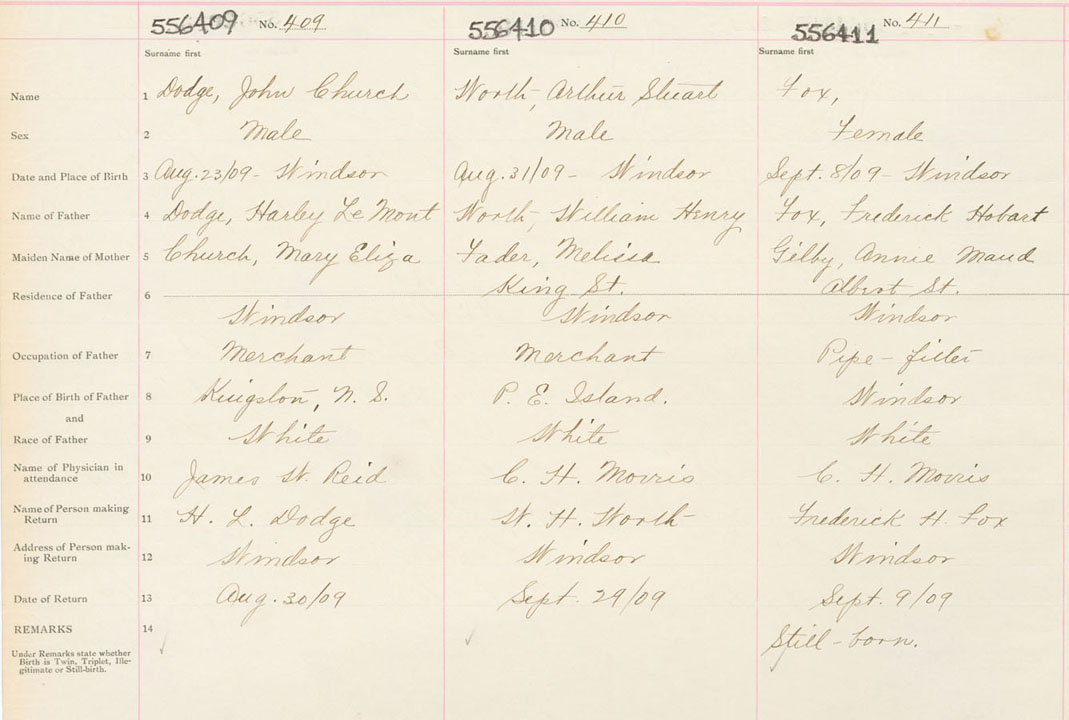 556409 No. 409 556410 No. 410 556411 No. 411
Surname first Surname first Surname first
Name 1 Dodge, John Church Worth, Arthur Stuart Fox,
Sex 2 Male Male Female
Date and Place of Birth 3 Aug. 23/09 - Windsor Aug. 31/09 - Windsor Sept. 8/09 - Windsor
Name of Father 4 Dodge, Harley Le Mont Worth, William Henry Fox, Frederick Hobart
Maiden Name of Mother 5 Church, Mary Eliza Fader, Melissa Gilby, Annie Maud
King St. Albert St.
Residence of Father 6
Windsor Windsor Windsor
Occupation of Father 7 Merchant Merchant Pipe-fitter
Place of Birth of Father 8 Kingston, N. S. P. E. Island. Windsor
and
Race of Father 9 White White White
Name of Physician in
attendance 10 James W. Reid C. H. Morris C. H. Morris
Name of Person making
Return 11 H. L. Dodge W. H. Worth Frederick H. Fox
Address of Person mak-
ing Return 12 Windsor Windsor Windsor
Date of Return 13 Aug. 30/09 Sept. 29/09 Sept. 9/09
REMARKS 14
Still-born.
Under Remarks state whether
Birth is Twin, Triplet, Ille-
gitimate or Still-birth.